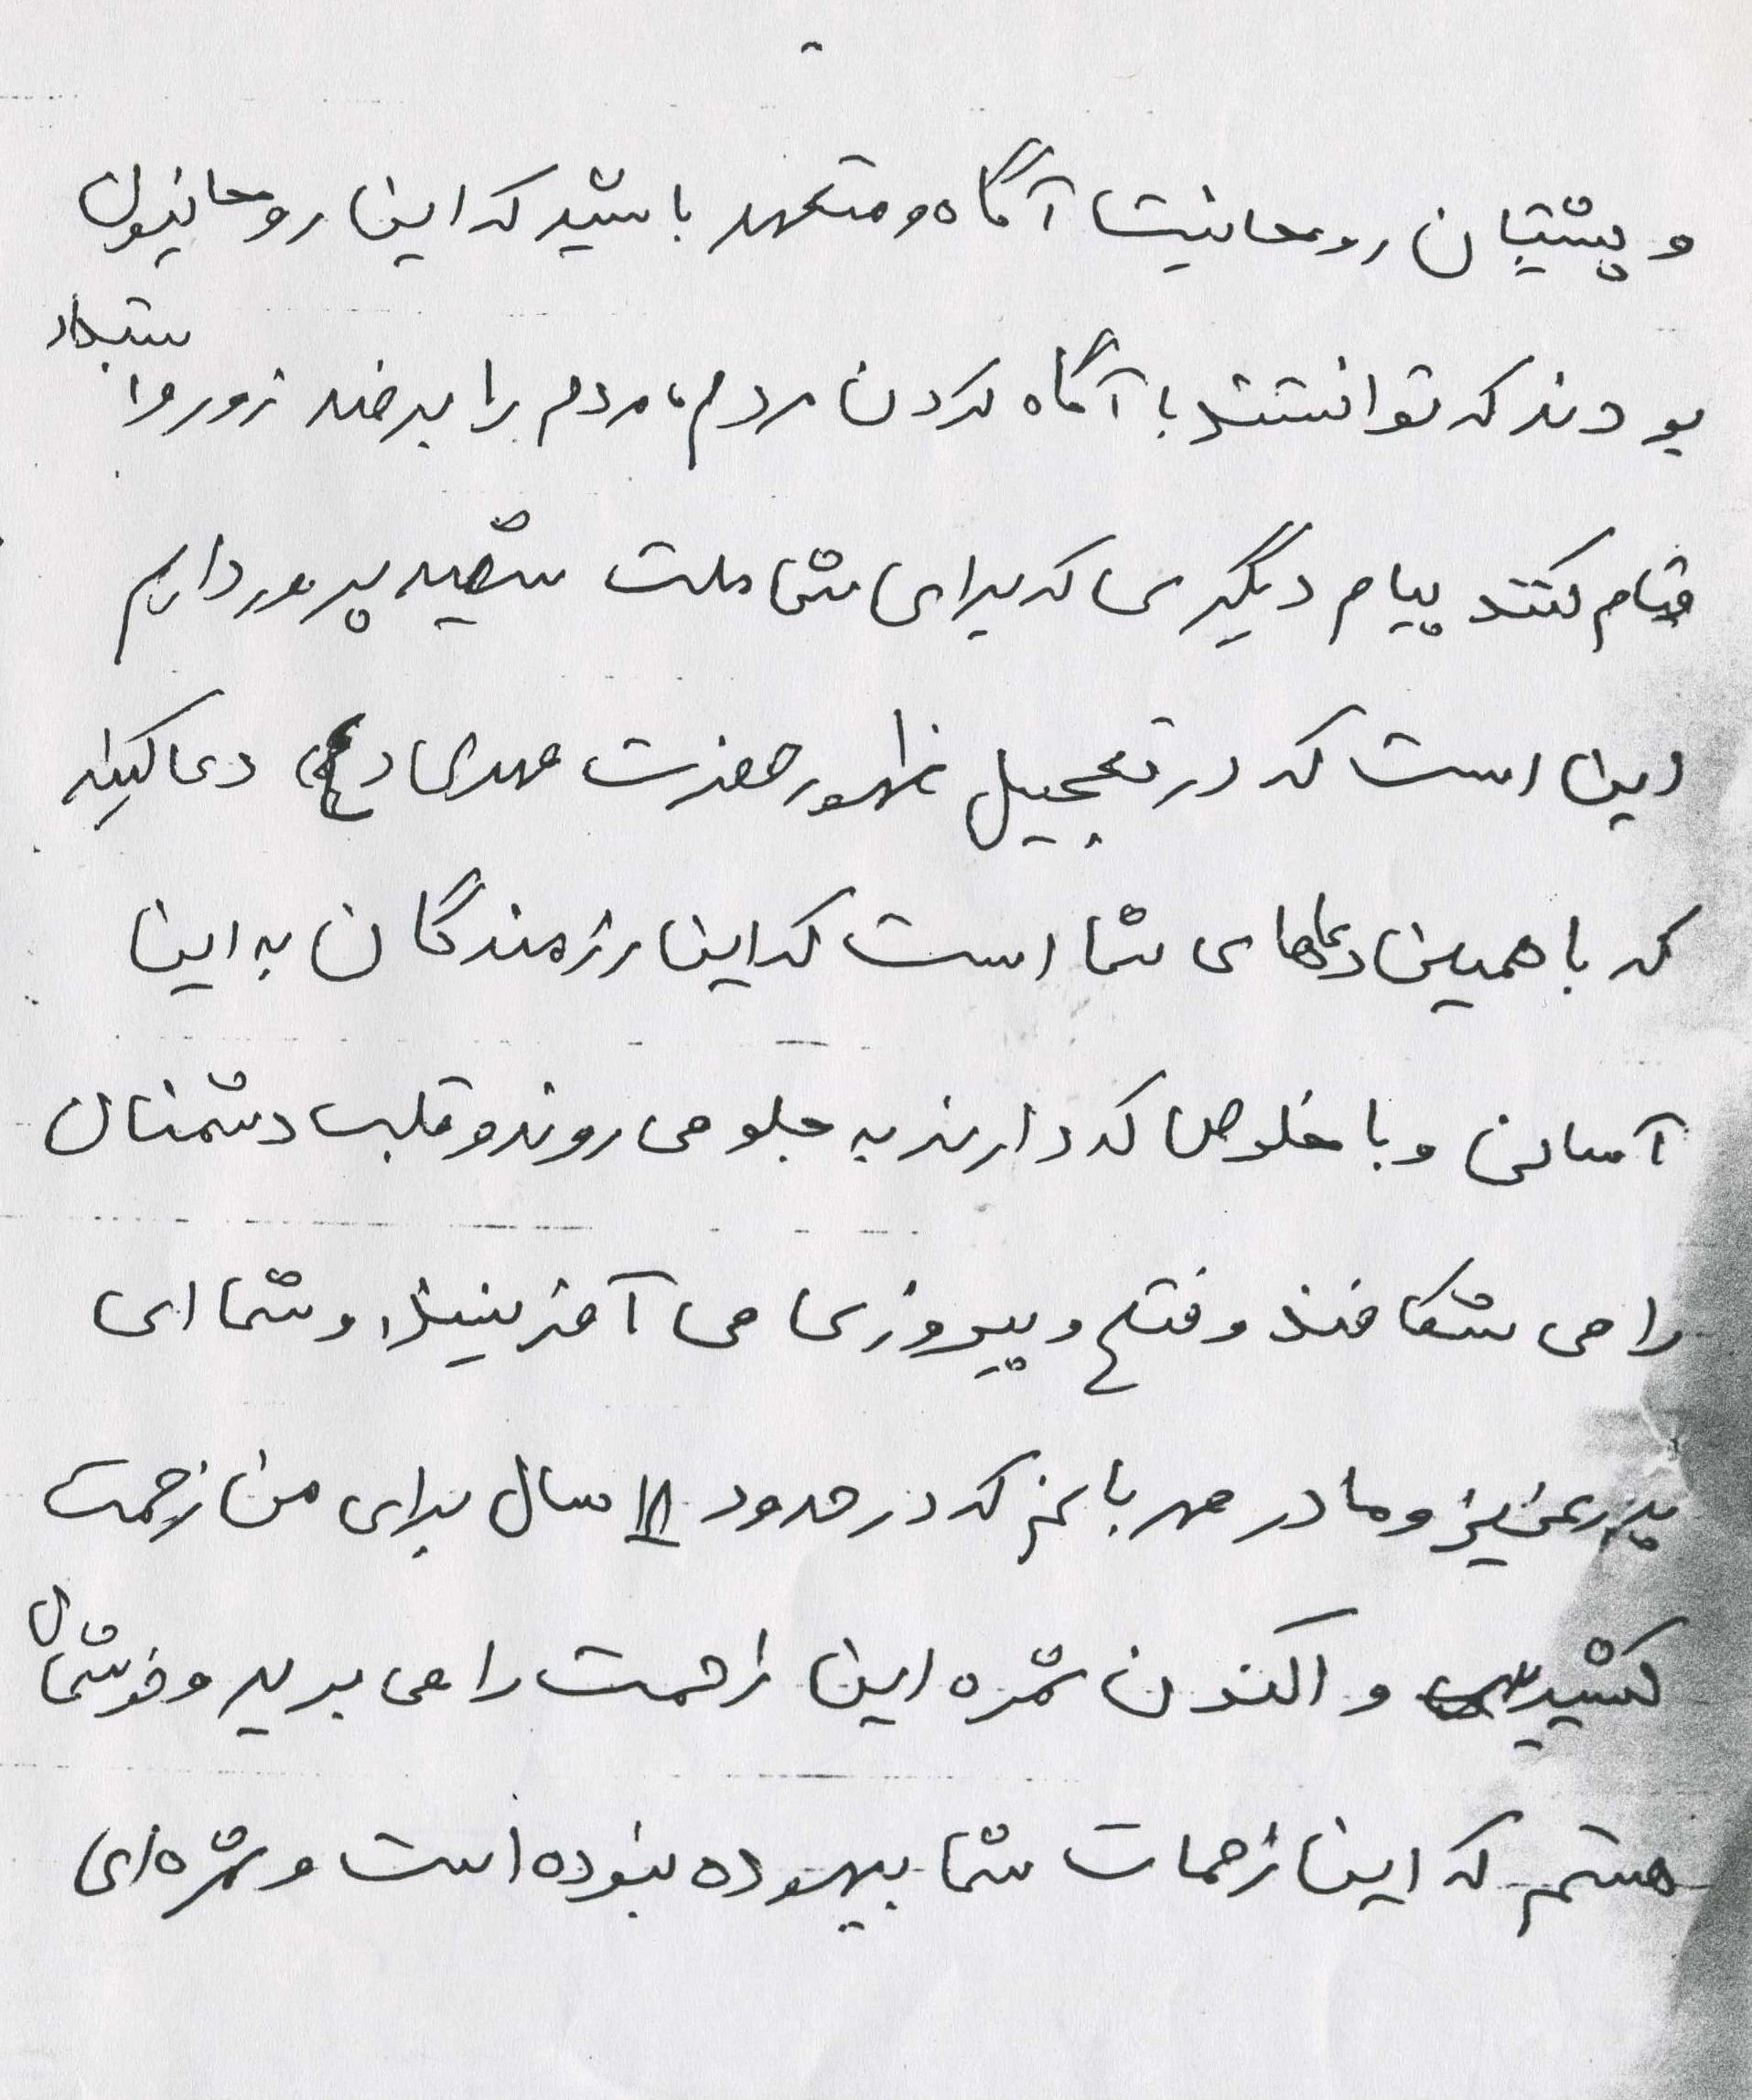 و پشتیبان روحانیت آگاه و متعهد باشید که این روحانیون
بودند که توانستند با آگاه کردن مردم، مردم را بر ضد زور و استبداد
قیام کنند پیام دیگری که برای شما ملت شهید پرور داریم
این است که در تعجیل ظهور حضرت مهدی (عج) دعا کنید
که با همین دعاهای شما است که این رزمندگان به این
آسانی و با خلوص که دارند به جلو می روند و قلب دشمنان
را می شکافند و فتح و پیروزی می آفرینند، و شما ای
پدر عزیز و مادر مهربانم که در حدود ۱۸ سال برای من زحمت
کشیدید و اکنون ثمره این زحمت را می برید و خوشحال
هستم که این زحمات شما بیهوده نبوده است و ثمره ای